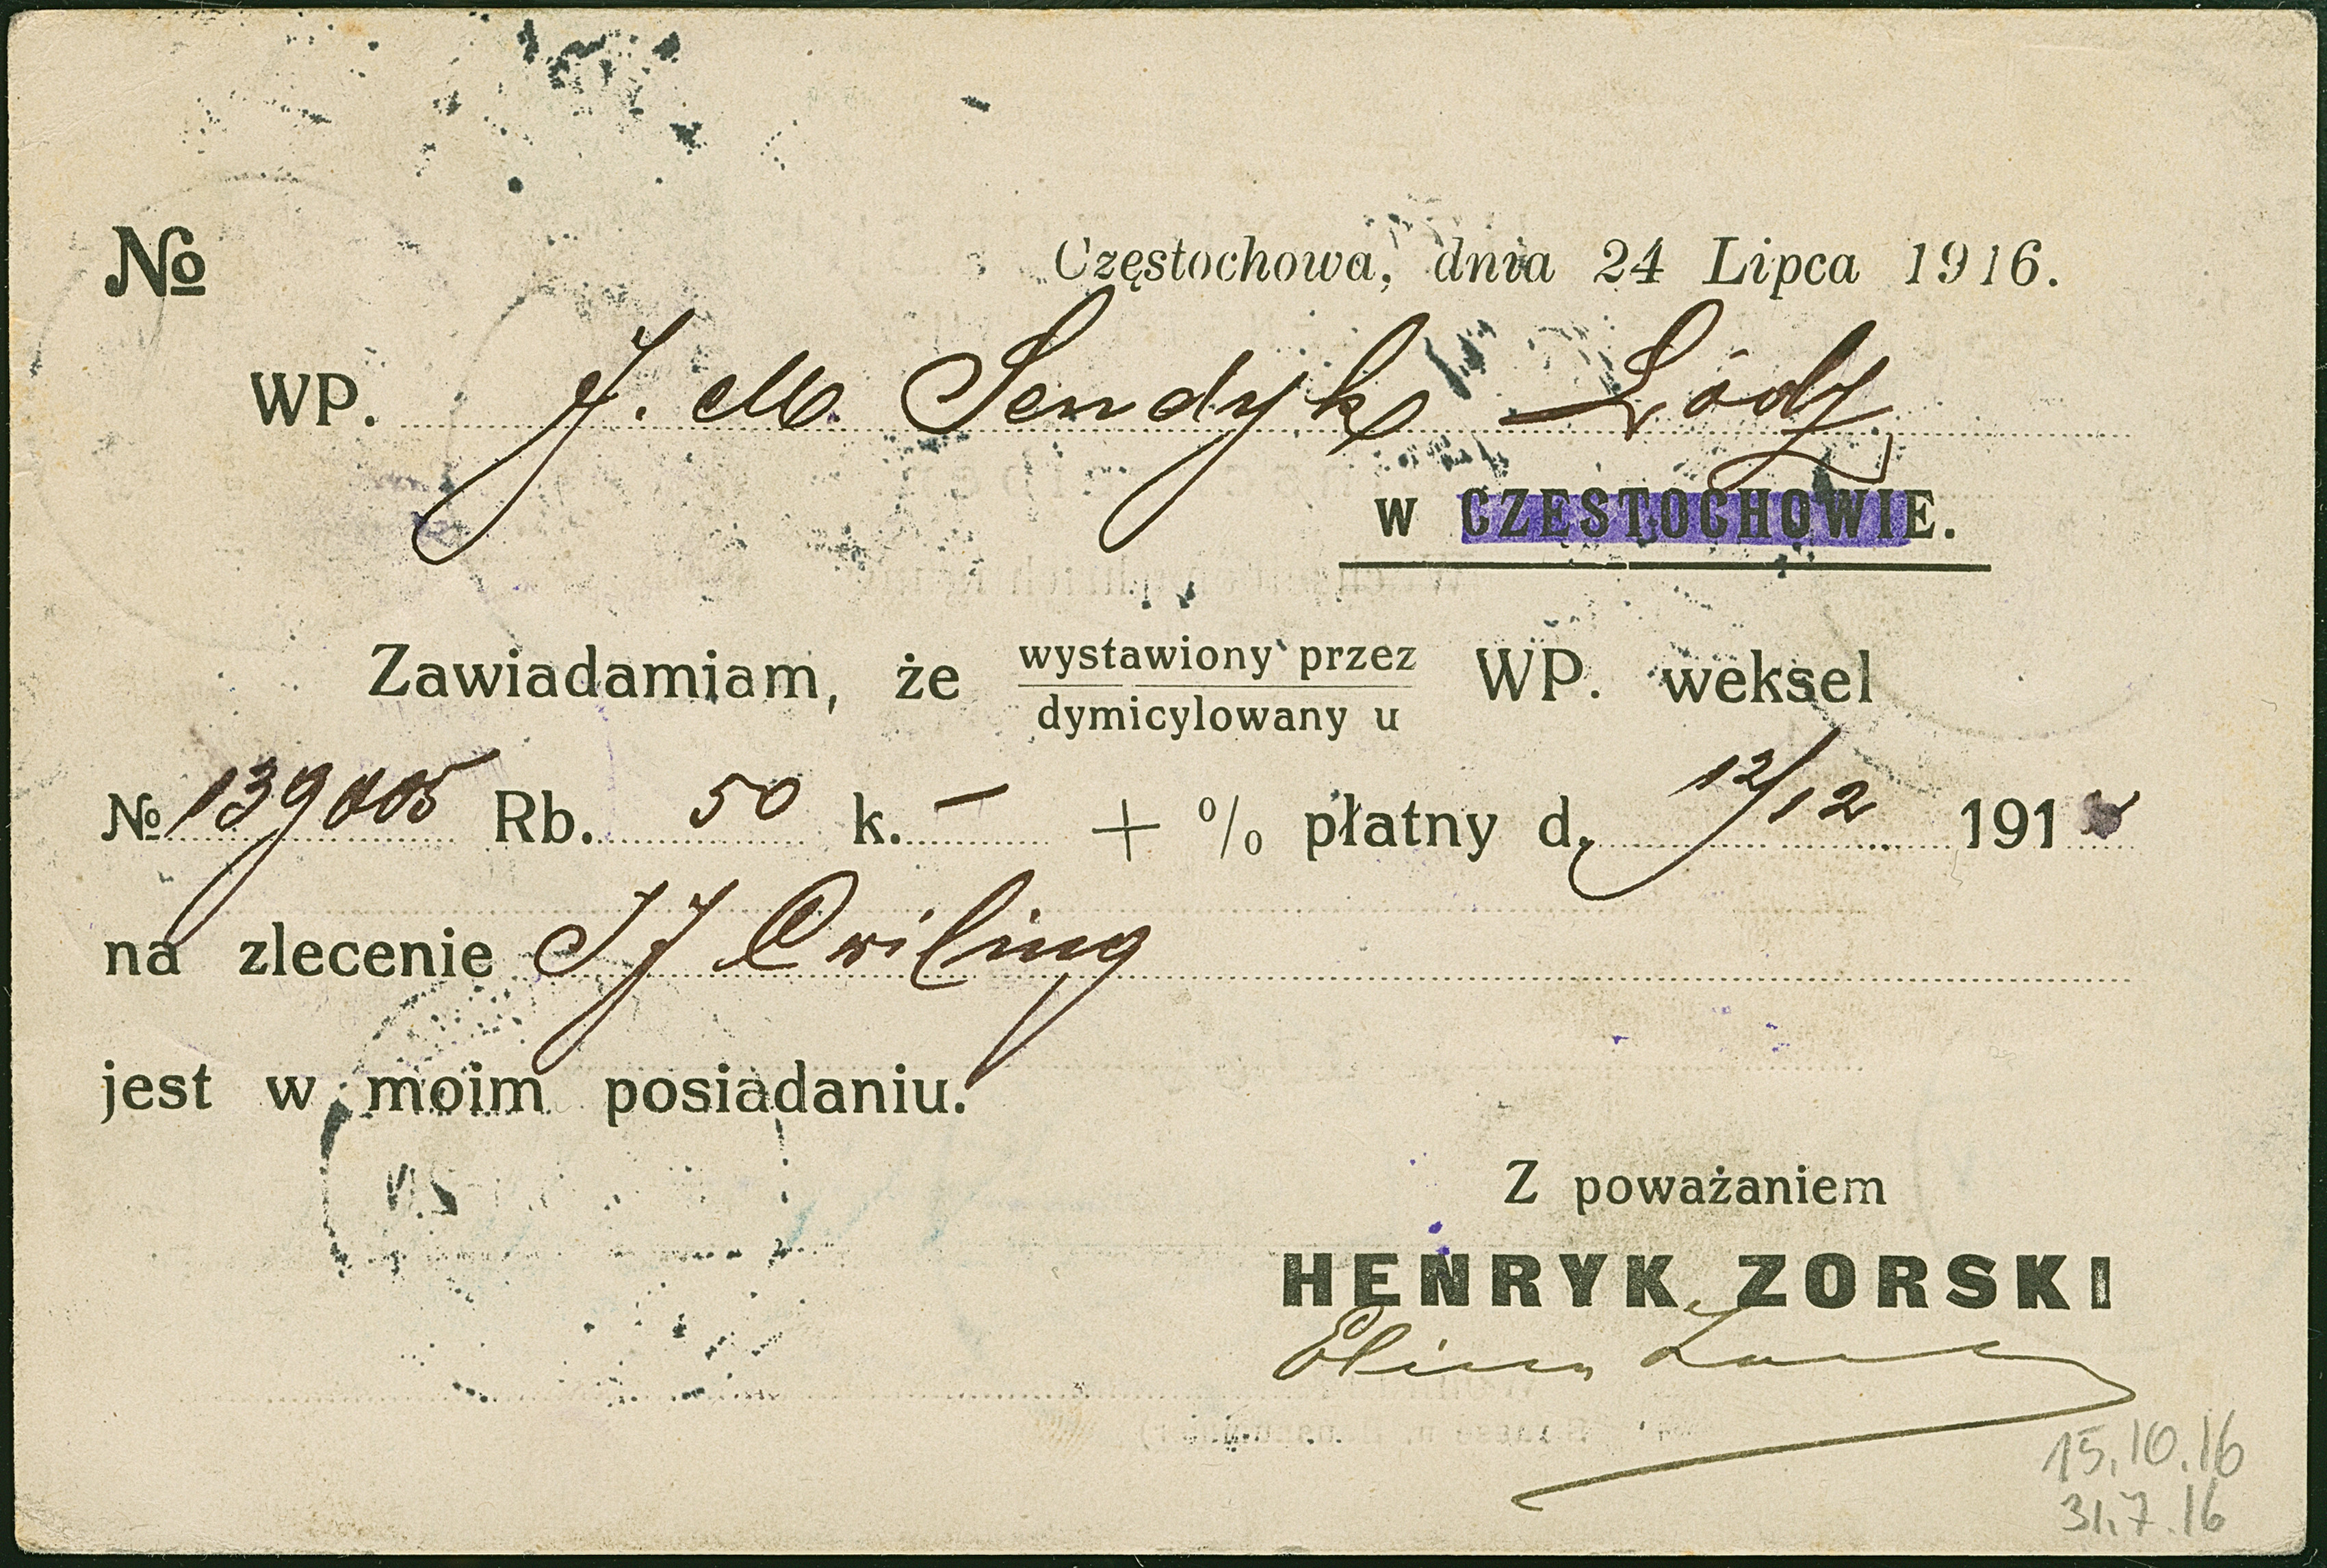 №
Częstochowa, dnia 24 Lipca 1916.
WP. J. M. Sendyk Łódź
w CZESTOCHOWIE.
Zawiadamiam, że wystawiony przez WP. weksel
dymicylowany u
№ 139005 Rb. 50 k. — + % płatny d. 12/12 191
na zlecenie J J Cwiling
jest w moim posiadaniu.
Z poważaniem
HENRYK ZORSKI
15.10.16
31.7.16